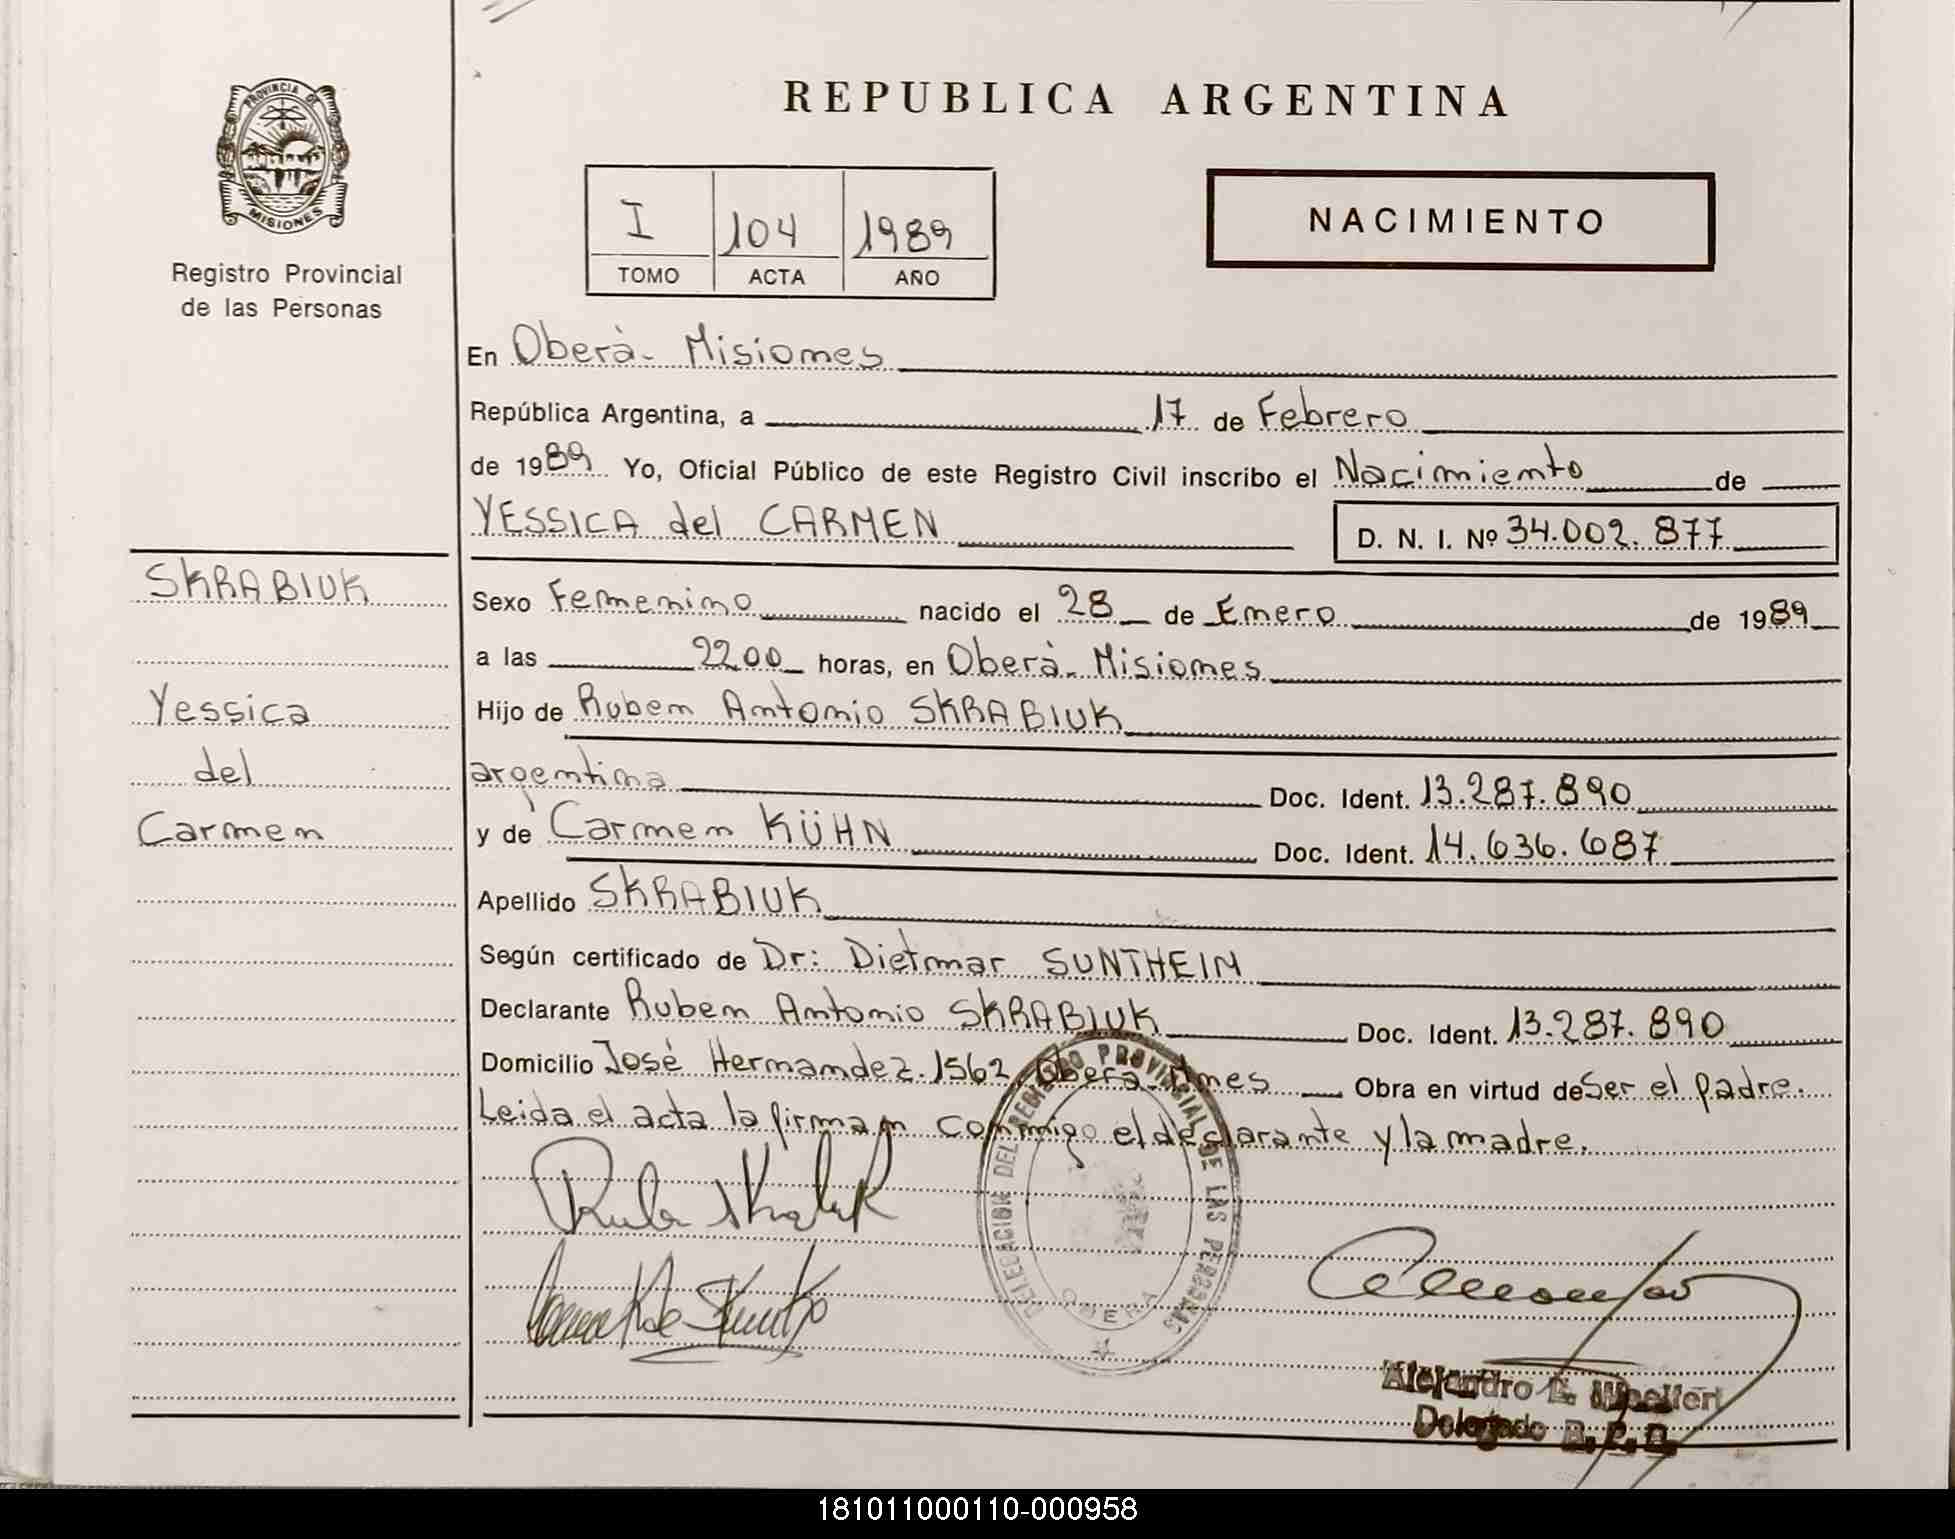 REPUBLICA ARGENTINA
PROVINCIA DE
MISIONES
Registro Provincial
de las Personas
I 104 1989
TOMO ACTA AÑO
NACIMIENTO
En Oberà- Misiones
República Argentina, a 17 de Febrero
de 1989 Yo, Oficial Público de este Registro Civil inscribo el Nacimiento de
YESSICA del CARMEN
D. N. I. Nº 34.002.877
SKRABIUK
Yessica
del
Carmen
Sexo Femenino nacido el 28 de Enero de 1989
a las 2200 horas, en Oberà- Misiones
Hijo de Ruben Antonio SKRABIUK
argentina Doc. Ident. 13.287.890
y de Carmen KÜHN Doc. Ident. 14.636.687
Apellido SKRABIUK
Según certificado de Dr: Dietmar SUNTHEIM
Declarante Ruben Antonio SKRABIUK Doc. Ident. 13.287.890
Domicilio José Hernandez.1562, Oberà-Mnes Obra en virtud de Ser el padre.
Leida el acta la firman conmigo el declarante y la madre.
DELEGACION DEL REGISTRO PROVINCIAL DE LAS PERSONAS
OBERA
Alejandro
Delegado R. P. P.
181011000110-000958